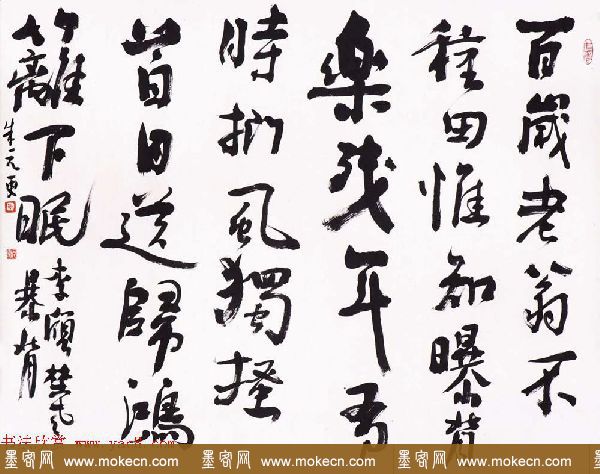 百歲老翁不
種田惟知曝背
樂残年有
時捫虱獨搔
首目送歸鴻
籬下眠
李頎埜老
曝背
书法欣赏
墨客网 www.mokecn.com 墨客网 www.mokecn.com 墨客网 www.mokecn.com